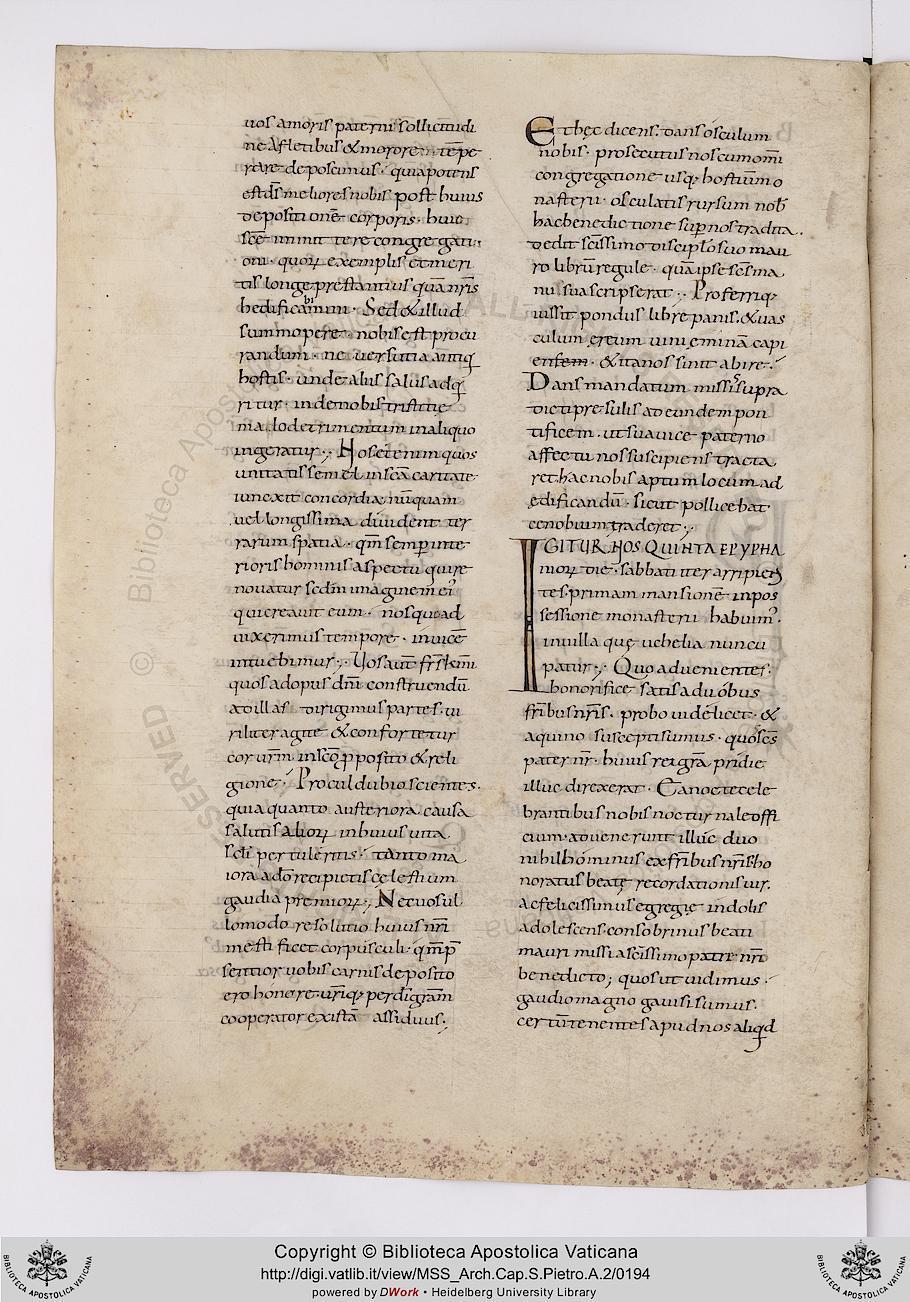 uos amoris paterni sollicitudi
ne Afletibus & merore tēpe
rare deposcimus· quia potens
est ds̄ meliores nobis post huius
depositionē corporis· huic
scē inmittere congregati
oni· quoꝝ exemplis et meri
tis longe prestantius quā nr̄is
hedificabimini· Sed & illud
summopere nobis est procu
randum· ne uersutia antiq
hostis· unde aliis salus adq
ritur· inde nobis tristitie
ma lo detrimentum in aliquo
ingeratur·, Hos etenim quos
unitatis semel in scā caritate
iunexit concordia nūquam
uel longissima diuident ter
rarum spatia· qm̄ semp̄ inte
rioris hominis aspectu qui re
nouatur scdm imaginem ei'
qui creauit eum· nosque ad
uixerimus tempore· inuicē
intuebimur·, Uos aut̄ fr̄s km̄i
quos ad opus dn̄i construendū
ad illas dirigimus partes· ui
riliter agite & confortetur
cor ur̄m in scō p̄posito & reli
gione·' Procul dubio scientes·
quia quanto austeriora causa
salutis alioꝝ in huius uita
scl̄i pertuleritis·' tanto ma
iora a dō recipietis cęlestium
gaudia premioꝝ·, Nec uos ul
lo modo resolutio huius nr̄i
mestificet corpusculi· qm̄ p
sentior uobis carnis deposito
ero honere· ur̄iq; per dī grām
cooperator existā assiduus·,
Et hęc dicens· dans osculum
nobis· prosecutus nos cum om̄i
congregatione usq; hostium mo
nasterii· osculatis rursum nob
hac benedictione sup̄ nos tradita·
dedit scīssimo discipl̄o suo mau
ro librū regule· quā ipse scs̄ ma
nu sua scripserat·, Proferriq;
iussit pondus libre panis· & uas
culum ęreum uini eminā capi
entem· & ita nos siuit abire·'
Dans mandatum missis supra
dicti presulis ad eundem pon
tificem· ut suauice paterno
affectu nos suscipiens tracta
ret hac nobis aptum locum ad
edificandū· sicut pollicebat·
cenobium traderet·,
IGITUR HOS QUINTA EPYPHA
nioꝝ die· sabbati iter arripien
tes primam mansionē in pos
sessione monasterii habuim'·
in uilla quę uchelia nuncu
patur·, Quo aduenientes·
honorifice satis a duobus
fr̄ibus nr̄is· probo uidelicet· &
aquino suscepti sumus· quos scs̄
pater nr̄· huius rei gra pridie
illuc direxerat· Canoetecele
brantibus nobis nocturnale offi
cium· aduenerunt illuc duo
nihilhominus ex fr̄ibus nr̄is ho
noratus beatę recordationis uir·
Ac felicissimus egregię indolis
adolescens· consobrinus beati
mauri missi a scīssimo patre nr̄o
benedicto; quos ut uidimus·
gaudio magno gauisi sumus·
certū tenentes apud nos aliqd
Copyright © Biblioteca Apostolica Vaticana
http://digi.vatlib.it/view/MSS_Arch.Cap.S.Pietro.A.2/0194
powered by DWork • Heidelberg University Library
BIBLIOTECA APOSTOLICA VATICANA
BIBLIOTECA APOSTOLICA VATICANA